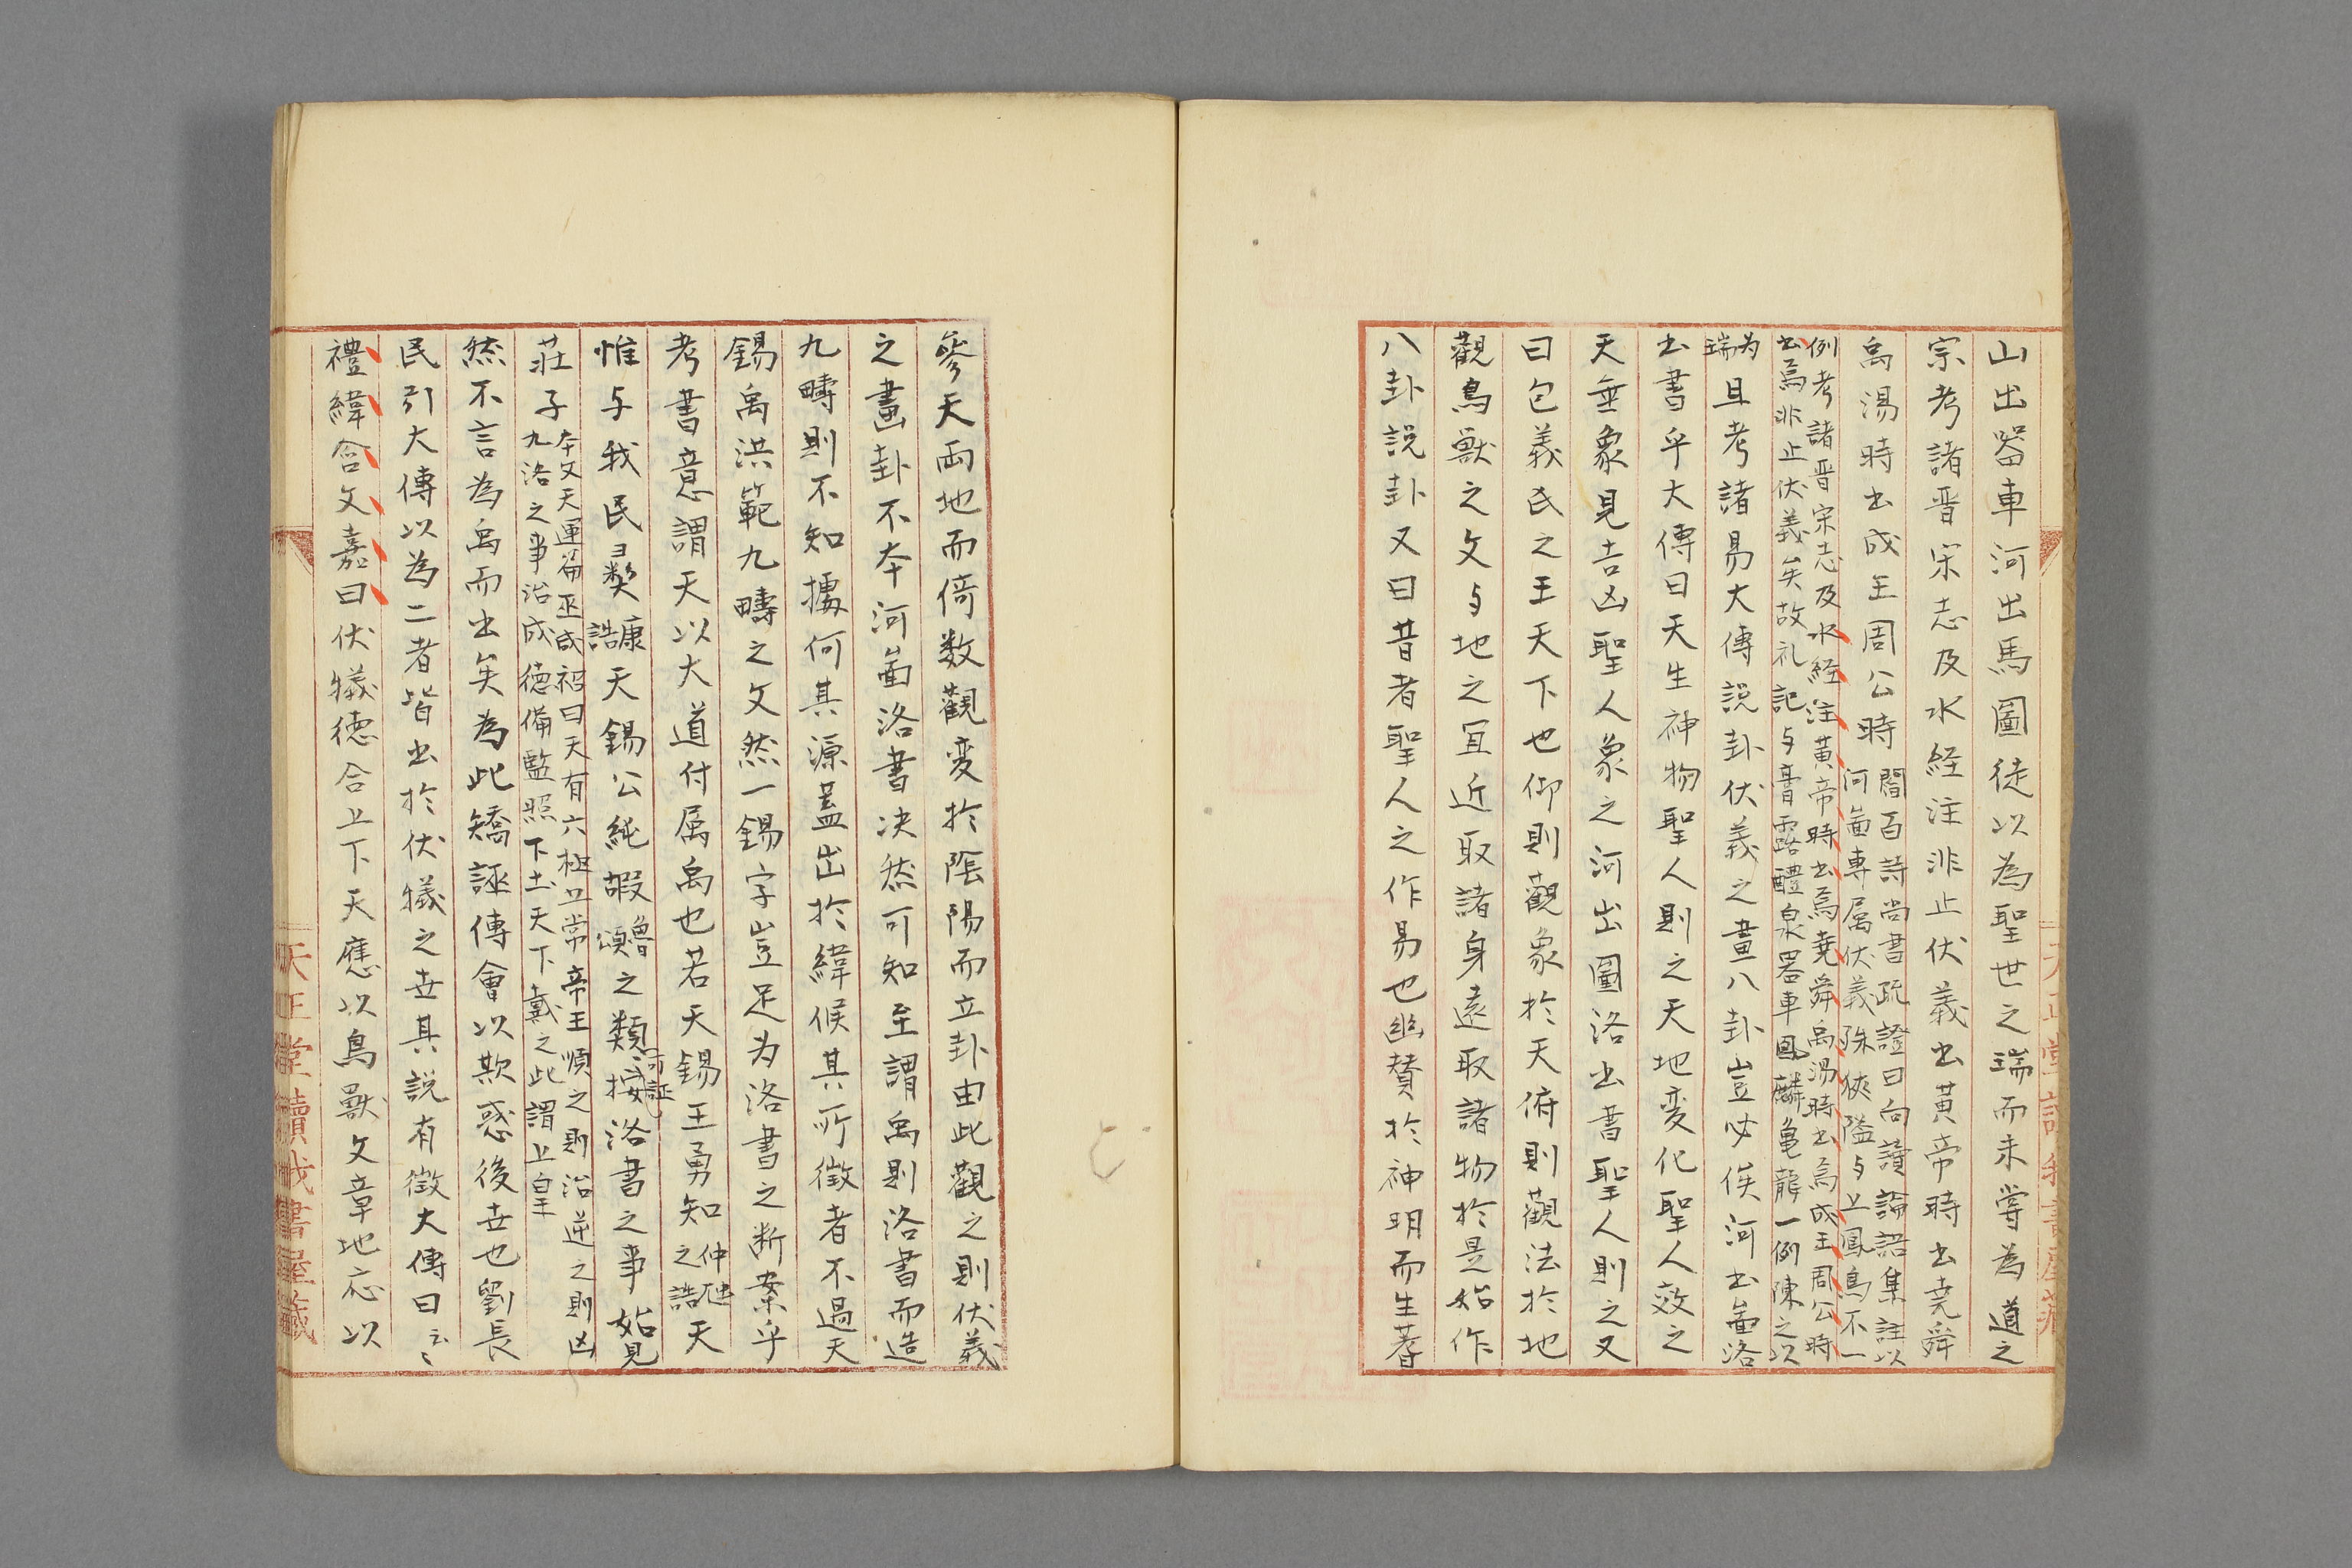 山出器車河出馬圖徒以為聖世之瑞而未嘗為道之
宗考諸晋宋志及水経注非止伏義出黃帝時出堯舜
禹湯時出成王周公時
閻百詩尚書疏證曰向讀論語集註以
河啚專属伏義殊俠隘与上鳳鳥不一
例考諸晋宋志及水経注黃帝時出焉堯舜禹湯時出焉成王周公時
出焉非止伏義矣故礼記与膏露醴泉器車鳳麟亀龍一例陳之以
为瑞且考諸易大傳説卦伏義之畫八卦豈必俟河出啚洛
出書乎大傳曰天生神物聖人則之天地変化聖人效之
天垂象見吉凶聖人象之河出圖洛出書聖人則之又
曰包義氏之王天下也仰則觀象於天俯則觀法於地
觀鳥獸之文与地之宜近取諸身遠取諸物於是始作
八卦説卦又曰昔者聖人之作易也幽赞於神明而生蓍
參天両地而倚数觀変於陰陽而立卦由此觀之則伏義
之畫卦不本河啚洛書决然可知至謂禹則洛書而造
九疇則不知據何其源蓋出於緯候其所徵者不過天
錫禹洪範九疇之文然一錫字豈足为洛書之断案乎
考書意謂天以大道付属禹也若天錫王勇知仲虺之誥天
惟与我民彛康誥天錫公純嘏魯頌之類可証按洛書之事始見
莊子
本文天運篇巫咸袑曰天有六極五常帝王順之則治逆之則凶
九洛之事治成德備監照下土天下戴之此謂上皇
然不言為禹而出矣為此矯誣傳會以欺惑後世也劉長
民引大傳以為二者皆出於伏犠之世其説有徵大傳曰云々
禮緯含文嘉曰伏犠德合上下天應以鳥獸文章地応以
天正堂讀我書屋藏